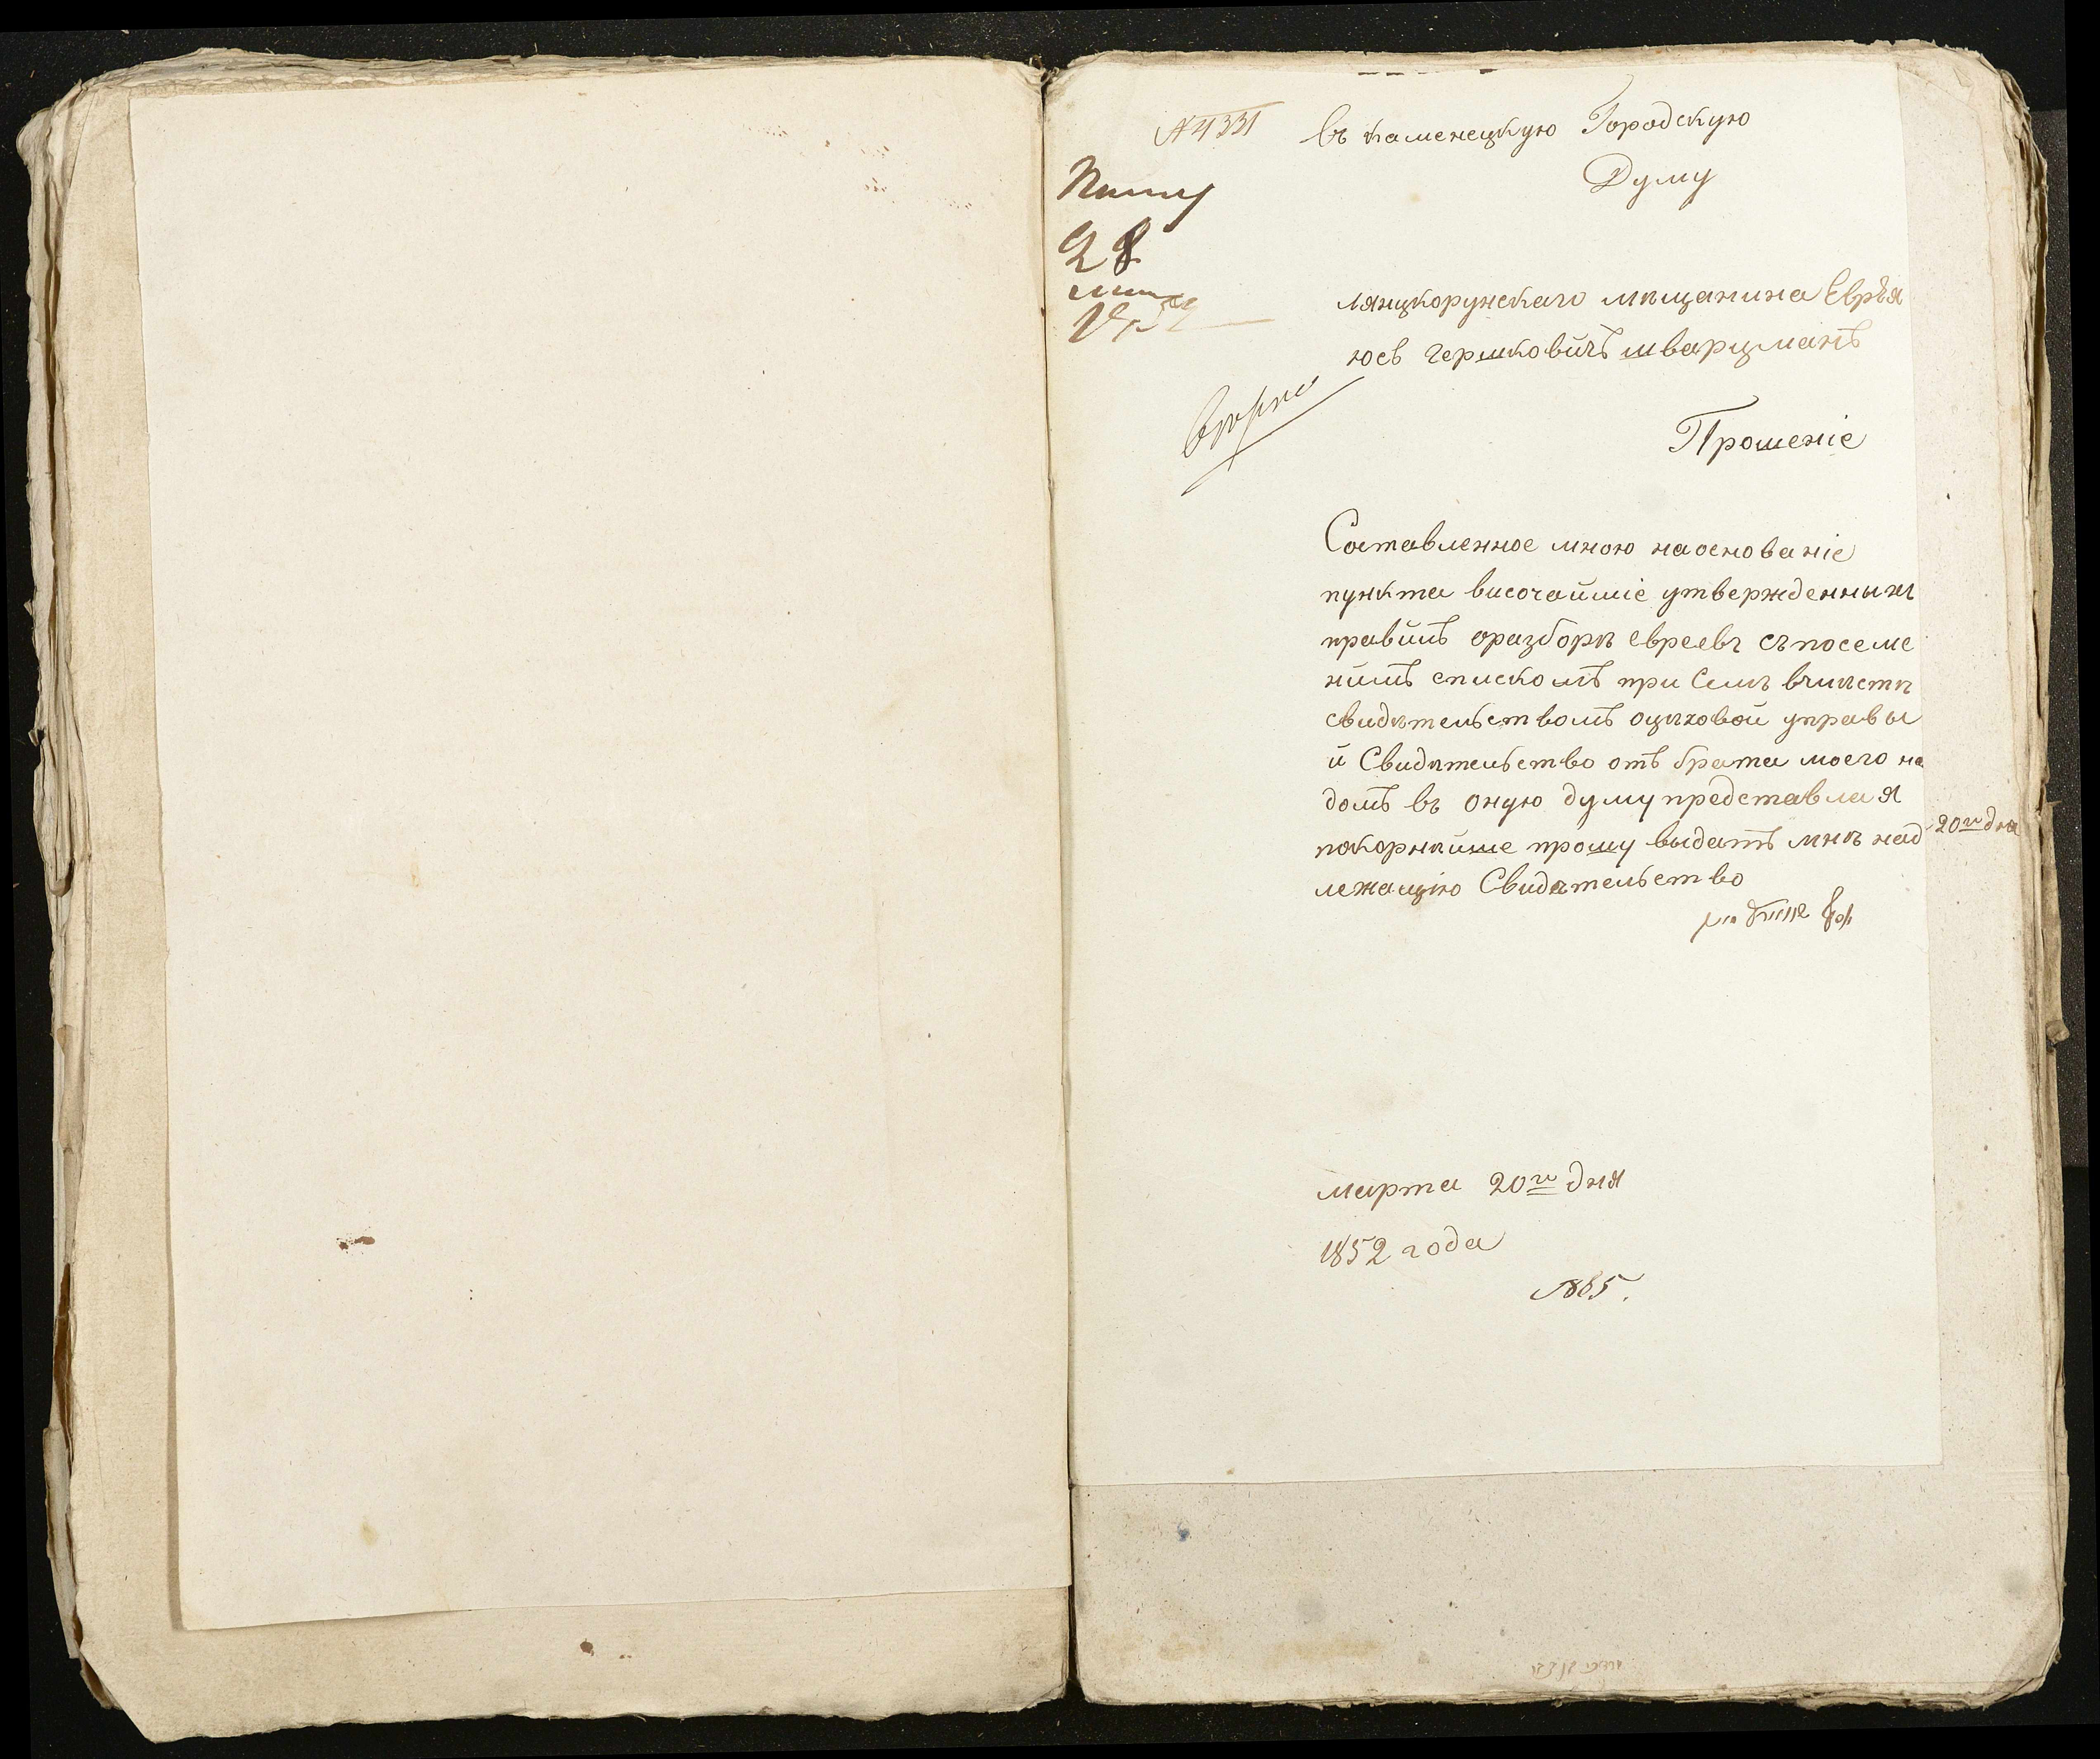 № 4331
въ каменецкую Городскую
Думу
28
лянцкорунскаго мѣщанина Еврѣя
юсъ гершковичъ шварцманъ
Прошеніе
Составленное мною наоснованіе
пункта височайшіе утвержденныхъ
правилъ оразборѣ евреевъ съпосеме
нимъ спискомъ при Семъ вмѣстѣ
свидѣтельствомъ оцѣховой управы
й Свидѣтельство отъ брата моего на
домъ въ оную думу представлая
покорнѣйше прошу выдатъ мнѣ над
лежащую Свидѣтельство
20го дня
марта 20го дня
1852 года
№ 85.